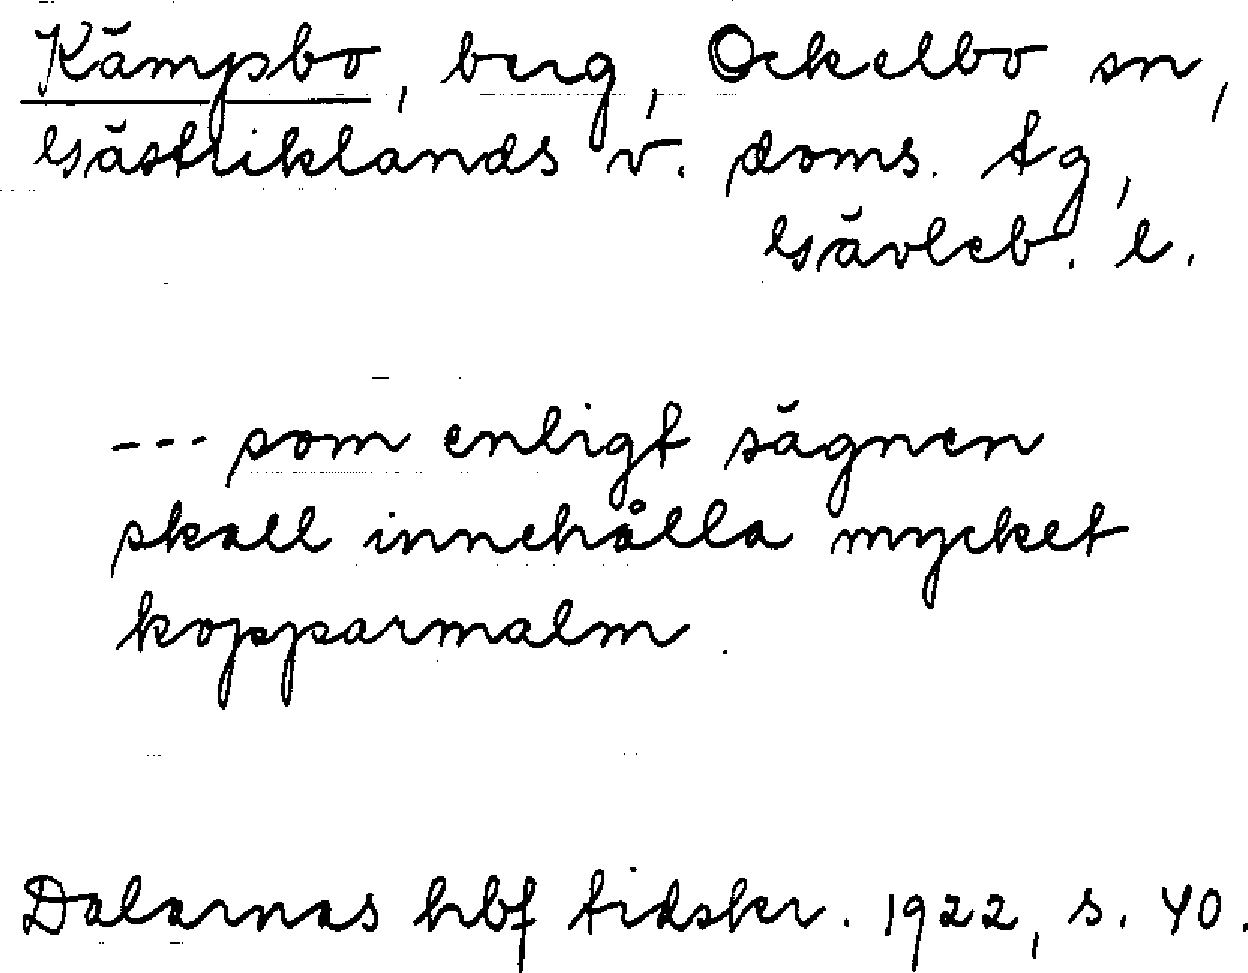 Kämpsbo, berg, Ockelbo sn,
Gästriklands v. doms. tg,
Gävleb. l.
--- som enligt sägnen
skall innehålla mycket
kopparmalm.
Dalarnas hbf tidskr. 1922, s. 40.